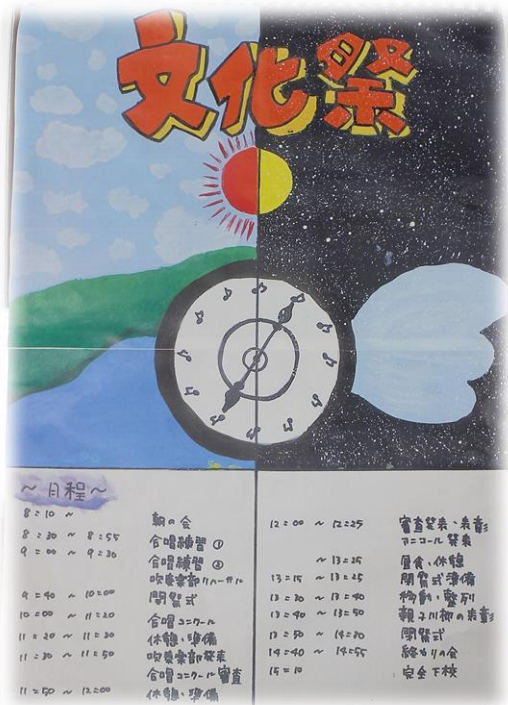 文化祭
～日程～
8:10 ～ 朝の会
8:30 ～ 8:55 合唱練習①
9:00 ～ 9:30 合唱練習②
吹奏楽部リハーサル
9:40 ～ 10:00 開祭式
10:00 ～ 11:20 合唱コンクール
11:20 ～ 11:30 休憩・準備
11:30 ～ 11:50 吹奏楽部発表
合唱コンクール審査
11:50 ～ 12:00 休憩・準備
12:00 ～ 12:25 審査発表・表彰
アンコール発表
～ 13:25 昼食・休憩
13:15 ～ 13:25 閉祭式準備
13:30 ～ 13:40 移動・整列
13:40 ～ 13:50 親子川柳の表彰
13:50 ～ 14:30 閉祭式
14:40 ～ 14:55 終わりの会
15:10 完全下校